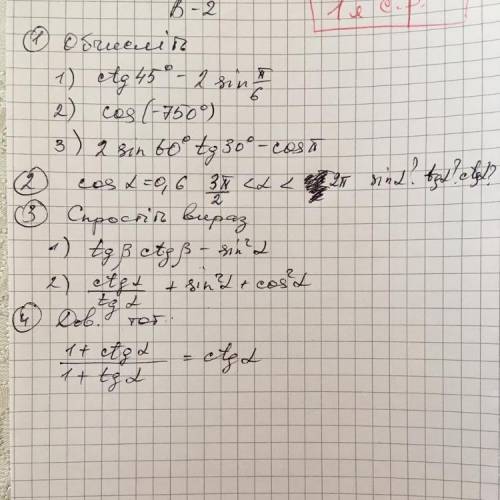 В-2
1 я С.Р.
① Обчисліть
1) ctg 45° - 2 sin π/6
2) cos (-750°)
3) 2 sin 60° tg 30° - cos π
② cos α = 0,6 3π/2 < α < 2π sin α? tg α? ctg α?
③ Спростіть вираз
1) tg β ctg β - sin² α
2) ctg α / tg α + sin² α + cos² α
④ Дов. тот.
1 + ctg α / 1 + tg α = ctg α